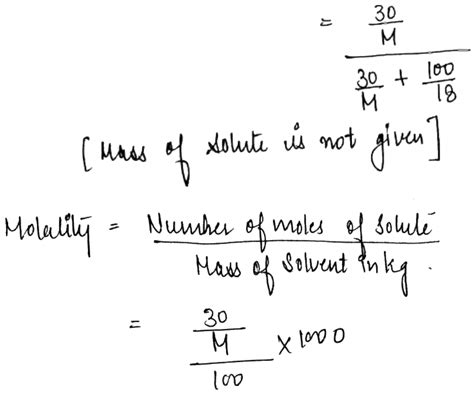 = 30/M / (30/M + 100/18)
[Mass of solute is not given]
Molality = Number of moles of solute / Mass of Solvent in kg.
= 30/M / 100 × 1000